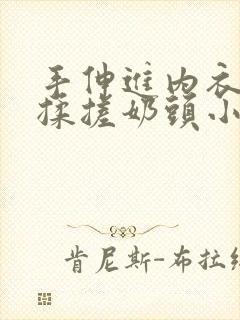 手伸進内衣
揉搓奶頭小
肯尼斯-布拉